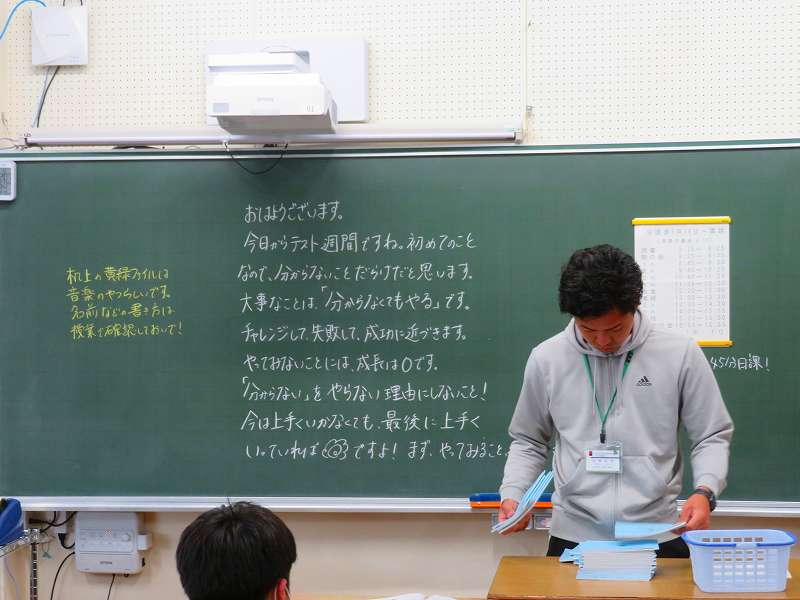 EPSON
おはようございます。
今日からテスト週間ですね。初めてのこと
なので、分からないことだらけだと思います。
大事なことは、「分からなくてもやる」です。
チャレンジして、失敗して、成功に近づきます。
やっておないことには、成長は0です。
「分からない」をやらない理由にしないこと!
今は上手くいかなくても、最後に上手く
いっていれば ですよ! まず、やってみること。
机上の黄緑ファイルは
音楽のやつらしいです。
名前などの書き方は
授業で確認しておいで!
45分日課!
adidas